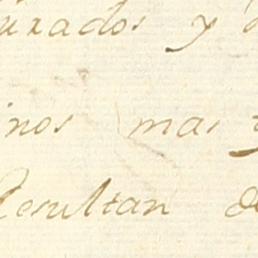 urados y
inos mas
Resultan de